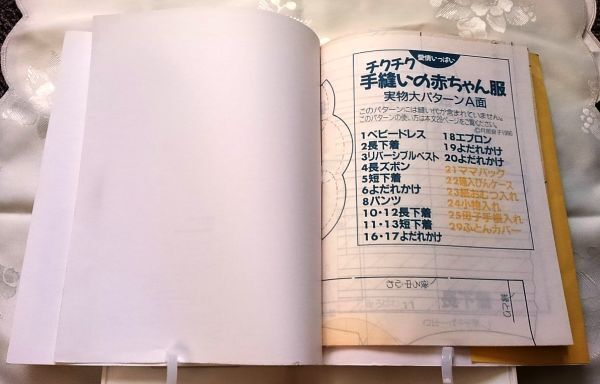 愛情いっぱい
チクチク
手縫いの赤ちゃん服
実物大パターンA面
このパターンには縫い代が含まれていません。
このパターンの使い方は本文29ページをご覧ください。
1ベビードレス
2長下着
3リバーシブルベスト
4長ズボン
5短下着
6よだれかけ
8パンツ
10・12長下着
11・13短下着
16・17よだれかけ
18エプロン
19よだれかけ
20よだれかけ
21ママバッグ
22哺入びんケース
23紙おむつ入れ
24小物入れ
25母子手帳入れ
29ふとんカバー
後ろ中心わ